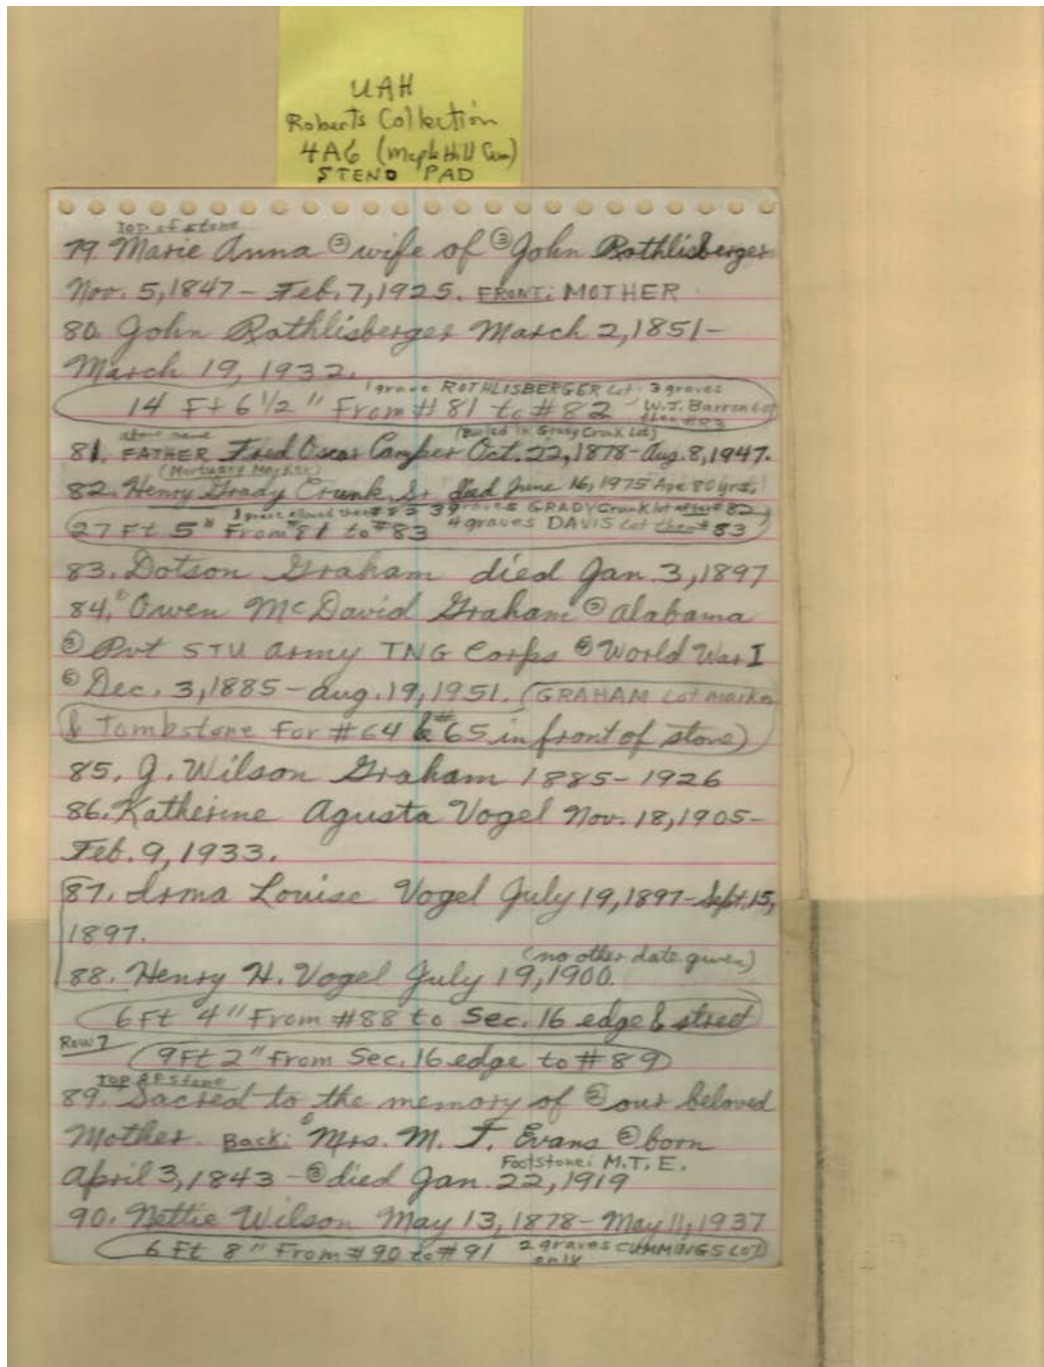 UAH
Roberts Collection
4A6 (Maple Hill Cem)
STENO PAD
Top of stone
79. Marie Anna ② wife of ③ John Rothlisberger
Nov. 5, 1847 - Feb. 7, 1925. FRONT: MOTHER
80. John Rothlisberger March 2, 1851 -
March 19, 1932.
1 grave ROTHLISBERGER Lot: 3 graves
14 Ft 6 1/2 " From # 81 to # 82 W.T. Barron Lot
then #83
above name (Buried in Grady Crunk Lot)
81. FATHER Fred Oscar Camper Oct. 22, 1878 - Aug. 8, 1947.
(Mortuary Marker)
82. Henry Grady Crunk, Sr. died June 16, 1975 Age 80 yrs.
1 grave allowed then # 82 39 graves GRADY Crunk lot after # 82
27 Ft 5" From # 81 to # 83 4 graves DAVIS Lot then # 83
83. Dotson Graham died Jan. 3, 1897
84. ① Owen McDavid Graham ② Alabama
③ Pvt STU Army TNG Corps ④ World War I
⑤ Dec. 3, 1885 - Aug. 19, 1951. (GRAHAM Lot marker
& Tombstone For # 64 & # 65 in front of stone)
85. J. Wilson Graham 1885 - 1926
86. Katherine Agusta Vogel Nov. 18, 1905 -
Feb. 9, 1933.
87. Irma Louise Vogel July 19, 1897 - Sept. 15,
1897.
(no other date given)
88. Henry H. Vogel July 19, 1900.
6 Ft 4" From # 88 to Sec. 16 edge & street
Row 7
9 Ft 2" From Sec. 16 edge to # 89
TOP OF Stone
89. Sacred to the memory of ② our beloved
Mother. Back: ① Mrs. M. T. Evans ② born
Footstone: M.T.E.
April 3, 1843 - ③ died Jan. 22, 1919
90. Nettie Wilson May 13, 1878 - May 11, 1937
6 Ft 8" From # 90 to # 91 2 graves CUMMINGS LOT
only